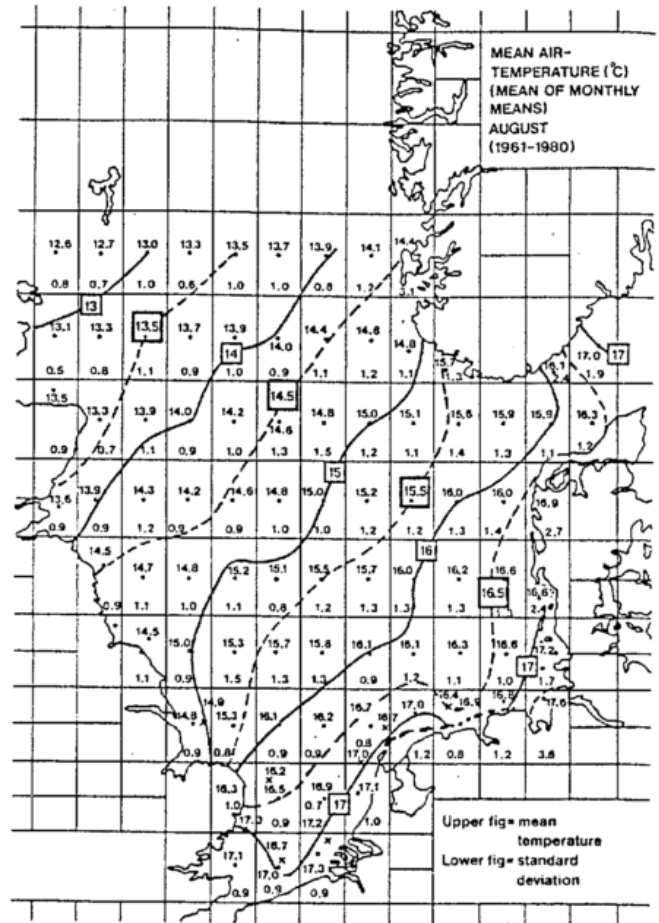 MEAN AIR-
TEMPERATURE (°C)
(MEAN OF MONTHLY
MEANS)
AUGUST
(1961-1980)
12.6 12.7 13.0 13.3 13.5 13.7 13.9 14.1 14.4
0.8 0.7 1.0 0.6 1.0 1.0 0.8 1.2
13
13.1 13.3 13.5 13.7 13.9 14.0 14.4 14.6 14.8 15.7
14
17.0 17
16.1
0.5 0.8 1.1 0.9 1.0 0.9 1.1 1.2 1.1 1.3 1.9
13.5
14.5
13.3 13.9 14.0 14.2 14.6 14.8 15.0 15.1 15.6 15.9 15.9 16.3
0.9 0.7 1.1 0.9 1.0 1.3 1.5 1.2 1.1 1.4 1.3 1.1 1.2
15
13.6 13.9 14.3 14.2 14.6 14.8 15.0 15.2 15.5 16.0 16.0 16.9
0.9 0.9 1.2 0.9 0.9 1.0 1.0 1.2 1.2 1.3 1.4 2.7
14.5
16
14.7 14.8 15.2 15.1 15.5 15.7 16.0 16.2 16.6
16.5
0.9 1.1 1.0 1.1 0.8 1.2 1.3 1.3 1.3 2.4
14.5 15.0 15.3 15.7 15.8 16.1 16.1 16.3 16.6 17.2
17
1.1 0.9 1.5 1.3 1.3 0.9 1.2 1.1 1.0 1.7
14.9
15.3 16.1 16.2 16.7 16.7 17.0 16.4 16.9 16.8 17.6
0.9 0.8 0.9 0.9 0.8 1.2 0.8 1.2 3.6
17.0
16.2
16.3 16.5 16.9 17.1
17
1.0 0.7
17.0 0.9 17.2 1.0
16.7
17.1 17.0 17.3
0.9 0.9 0.9
Upper fig= mean
temperature
Lower fig= standard
deviation